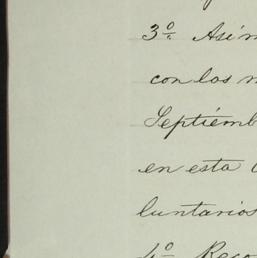 3º Asím
con los m
Septiemb
en esta
luntarios
4º Reco